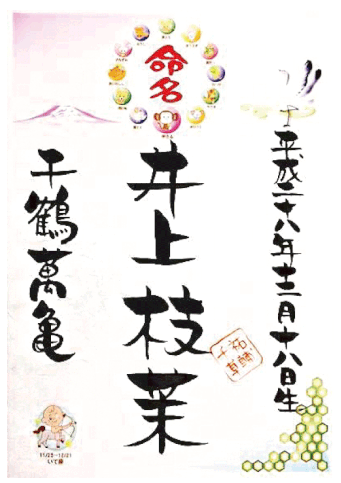 命名
平成二十八年十二月十八日生
井上枝茉
千鶴萬亀
11/23~12/21
いて座